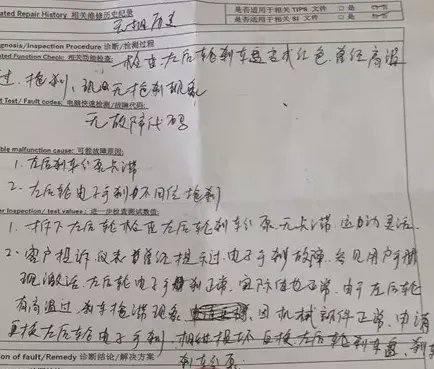 ated Repair History 相关维修历史纪录
无相历史
是否适用于相关 TIPS 文件 □ 是
是否适用于相关 SI 文件 □ 是
agnosis/Inspection Procedure 诊断/检测过程
ated Function Check: 相关功能检查: 检查左后轮刹车盘变成红色,曾经高温
过,抢刹,现无抢刹现象
t Test / Fault codes: 电脑快速检测/故障代码:
无故障代码
ble malfunction cause: 可能故障原因:
1. 左后刹车分泵卡滞
2. 左后轮电子手刹不回位抢刹
er Inspection/ test values: 进一步检查测试数值:
1. 拆下左后轮检查左后轮刹车分泵无卡滞,运动灵活.
2. 客户投诉仪表曾经提示过电子手刹故障,参见用户手册
现激活左后轮电子手刹正常,实际值也正常.由于左后轮
有高温过,刹车抢滞现象 因机械部件正常,申请
更换左后轮电子手刹,相继损坏更换左后轮刹车盘,刹车
ion of fault/Remedy 诊断结论/解决方案
刹车分泵.